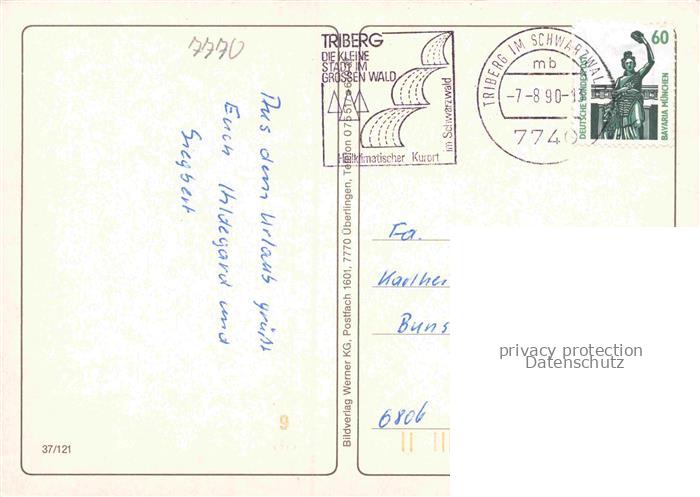 7770
Aus dem Urlaub grüßt
Euch Hildegard und
Siegbert
37/121
9
Bildverlag Werner KG, Postfach 1601, 7770 Überlingen, Telefon 07551/
TRIBERG
DIE KLEINE
STADT IM
GROSSEN WALD
im Schwarzwald
Heilklimatischer Kurort
TRIBERG IM SCHWARZWAL
mb
-7.-8.90-1
7740
60
DEUTSCHE BUNDESPOST
BAVARIA MÜNCHEN
Fa.
Karlhei
Buns
6806
privacy protection
Datenschutz